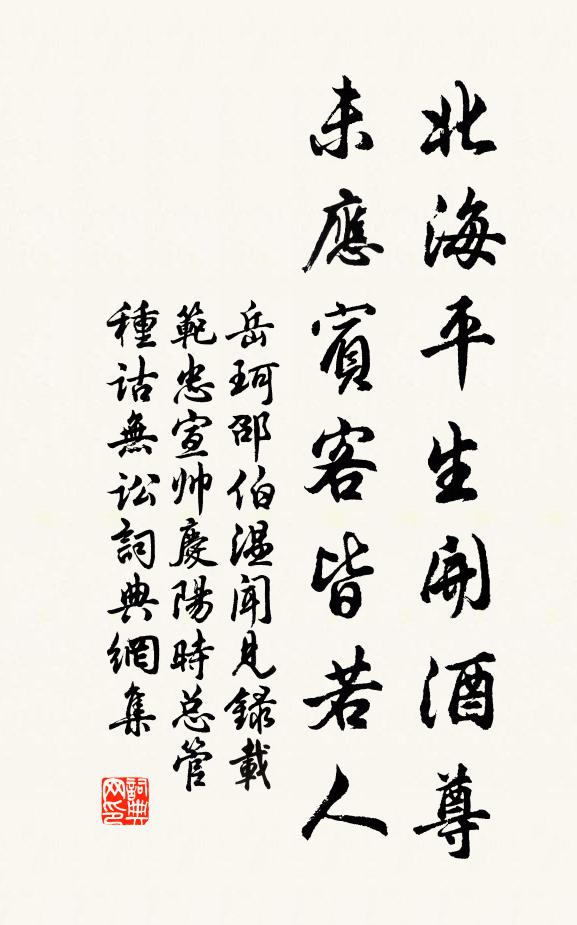 北海平生開酒尊
未應賓客皆若人
岳珂邵伯温聞見録載
範忠宣帅慶陽時总管
種诂無讼詞典網集
詞典网印